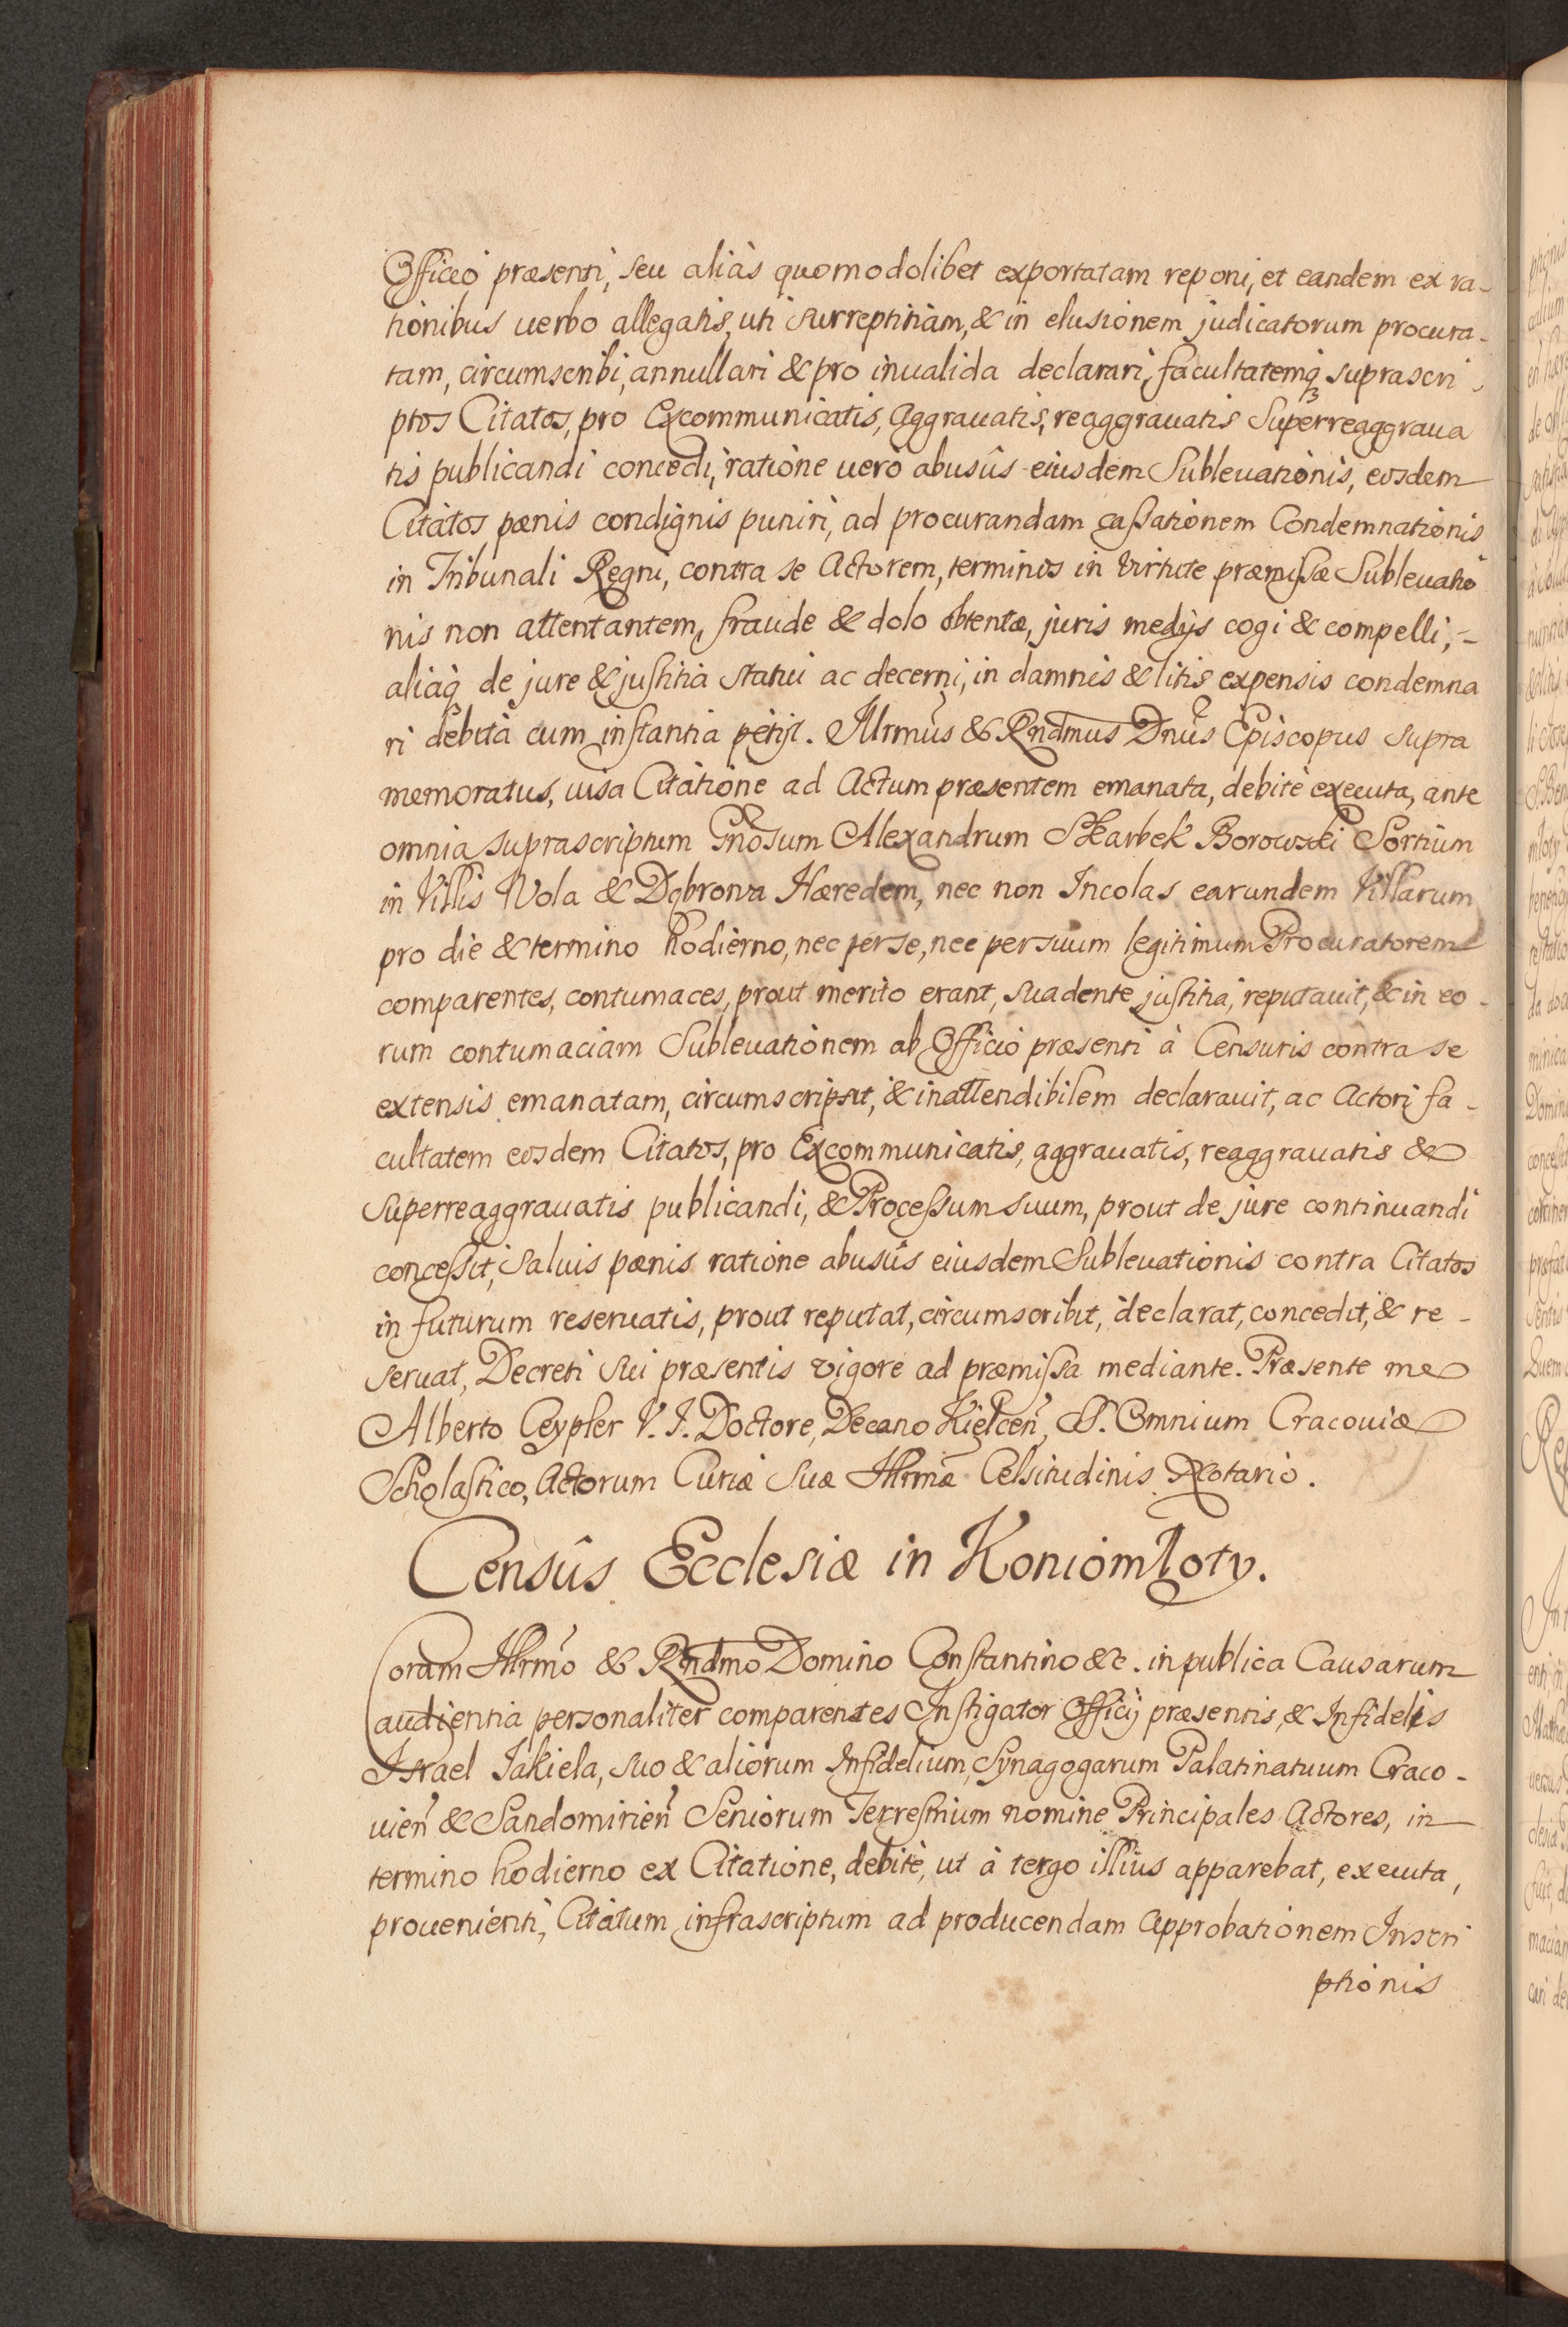 Officio præsenti, seu aliàs quomodolibet exportatam reponi, et eandem ex ra-
tionibus uerbo allegatis, uti surreptitiam, & in elusionem judicatorum procura-
tam, circumscribi, annullari & pro inualida declarari, facultatemq suprascri-
ptos Citatos, pro Excommunicatis, Aggrauatis, reaggrauatis Superreaggraua
tis publicandi concedi, ratione uero abusûs eiusdem Subleuationis, eosdem
Citatos pænis condignis puniri, ad procurandam cassationem Condemnationis
in Tribunali Regni, contra se Actorem, terminos in virtute præmissæ Subleuatio
nis non attentantem, fraude & dolo obtentæ, juris medijs cogi & compelli, -
aliaq de jure & justitia statui ac decerni, in damnis & litis expensis condemna
ri debita cum instantia petijt. Illrmus & Rndmus Dnus Episcopus supra
memoratus, uisa Citatione ad Actum præsentem emanata, debitè executa, ante
omnia suprascriptum Gnosum Alexandrum Skarbek Borowski Sortium
in Villis Wola & Dąbrowa Hæredem, nec non Incolas earundem Villarum
pro die & termino hodierno, nec per se, nec per suum legitimum Procuratorem
comparentes, contumaces, prout merito erant, suadente justitia, reputauit, & in eo-
rum contumaciam Subleuationem ab Officio præsenti à Censuris contra se
extensis emanatam, circumscripsit, & inattendibilem declarauit, ac Actori fa-
cultatem eosdem Citatos, pro Excommunicatis, aggrauatis, reaggrauatis &
Superreaggrauatis publicandi, & Processum suum, prout de jure continuandi
concessit, saluis pænis ratione abusûs eiusdem Subleuationis contra Citatos
in futurum reseruatis, prout reputat, circumscribit, declarat, concedit, & re-
seruat, Decreti sui præsentis vigore ad præmissa mediante. Præsente me
Alberto Ceypler V. J. Doctore, Decano Kielcen, SS. Omnium Cracouiæ
Scholastico, Actorum Curiæ Suæ Illrmæ Celsitudinis Notario.
Censûs Ecclesiæ in Koniomłoty.
Coram Illrmo & Rndmo Domino Constantino &c. in publica Causarum
audientia personaliter comparentes Instigator Officij præsentis, & Infidelis
Israel Jakiela, suo & aliorum Infidelium, Synagogarum Palatinatuum Craco-
uien & Sandomirien Seniorum Terrestrium nomine Principales Actores, in
termino hodierno ex Citatione, debitè, ut à tergo illius apparebat, executa,
prouenienti, Citatum infrascriptum ad producendam Approbationem Inscri
ptionis